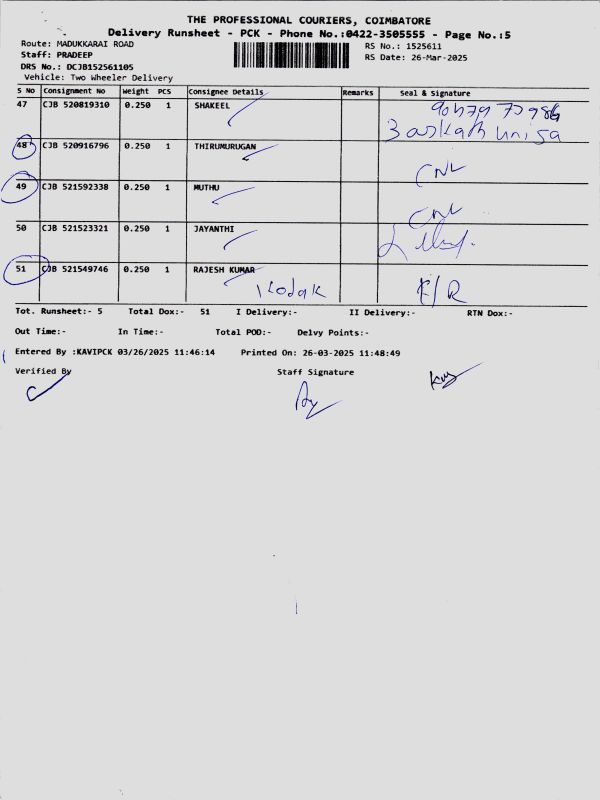 THE PROFESSIONAL COURIERS, COIMBATORE
Delivery Runsheet - PCK - Phone No.:0422-3505555 - Page No.:5
Route: MADUKKARAI ROAD
RS No.: 1525611
Staff: PRADEEP
RS Date: 26-Mar-2025
DRS No.: DCJB152561105
Vehicle: Two Wheeler Delivery
S No Consignment No Weight PCS Consignee Details Remarks Seal & Signature
47 CJB 520819310 0.250 1 SHAKEEL
48 CJB 520916796 0.250 1 THIRUMURUGAN
CNL
49 CJB 521592338 0.250 1 MUTHU
CNL
50 CJB 521523321 0.250 1 JAYANTHI
51 CJB 521549746 0.250 1 RAJESH KUMAR
Kodak
Tot. Runsheet:- 5 Total Dox:- 51 I Delivery:- II Delivery:- RTN Dox:-
Out Time:- In Time:- Total POD:- Delvy Points:-
Entered By :KAVIPCK 03/26/2025 11:46:14 Printed On: 26-03-2025 11:48:49
Verified By Staff Signature